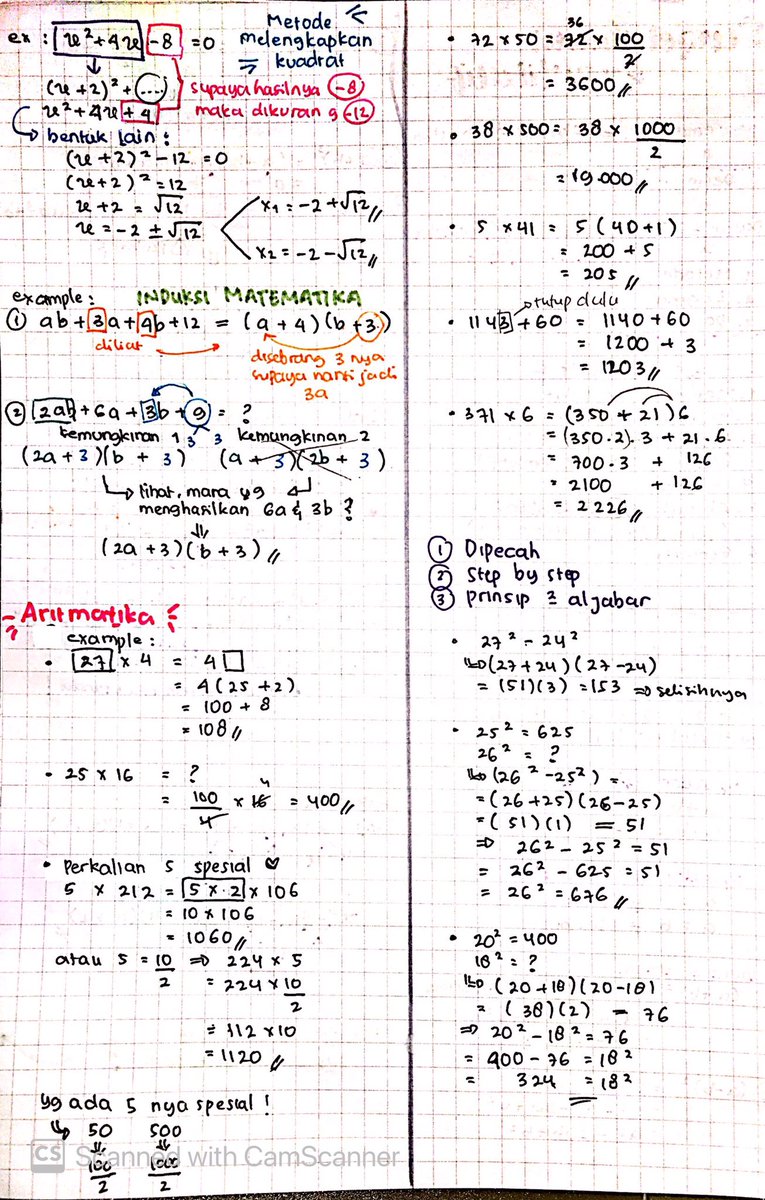 ex : x²+4x -8 =0
Metode
melengkapkan
kuadrat
(x+2)²+(...)
x²+4x+4
supaya hasilnya -8
maka dikurang -12
bentuk lain :
(x+2)² -12 =0
(x+2)² =12
x+2 = √12
x = -2 ± √12
x₁ = -2+√12 //
x₂ = -2-√12 //
example : INDUKSI MATEMATIKA
① ab+3a+4b+12 = (a+4)(b+3)
diliat
disebrang 3 nya
supaya nanti jadi
3a
② 2ab+6a+3b+9 = ?
3 3
kemungkinan 1 kemungkinan 2
(2a+3)(b+3) (a+3)(2b+3)
lihat, mana yg
menghasilkan 6a & 3b ?
(2a+3)(b+3) //
Aritmatika
example :
• 27 × 4 = 4□
= 4(25+2)
= 100 + 8
= 108 //
• 25 × 16 = ?
= 100/4 × 16 4 = 400 //
• Perkalian 5 spesial ♡
5 × 212 = 5 × 2 × 106
= 10 × 106
= 1060 //
atau 5 = 10/2 ⇒ 224 × 5
= 224 × 10/2
= 112 × 10
= 1120 //
yg ada 5 nya spesial !
50 500
100/2 1000/2
CS Scanned with CamScanner
• 72 × 50 = 72 36 × 100/2
= 3600 //
• 38 × 500 = 38 × 1000/2
= 19.000 //
• 5 × 41 = 5(40+1)
= 200 + 5
= 205 //
→ tutup dulu
• 1143 + 60 = 1140+60
= 1200 + 3
= 1203 //
• 371 × 6 = (350 + 21)6
= (350.2).3 + 21.6
= 700.3 + 126
= 2100 + 126
= 2226 //
① Dipecah
② Step by step
③ Prinsip ² aljabar
• 27² - 24²
(27+24)(27-24)
= (51)(3) = 153 ⇒ selisihnya
• 25² = 625
26² = ?
(26² -25²) =
= (26+25)(26-25)
= (51)(1) = 51
⇒ 26² - 25² = 51
= 26² - 625 = 51
= 26² = 676 //
• 20² = 400
18² = ?
(20+18)(20-18)
= (38)(2) - 76
⇒ 20² - 18² = 76
= 400 - 76 = 18²
= 324 = 18²